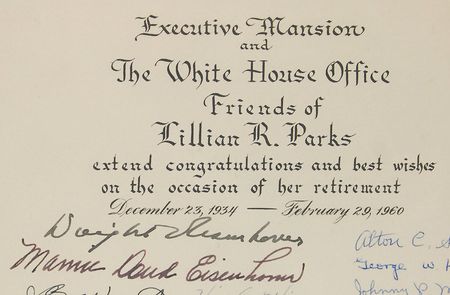 Executive Mansion
and
The White House Office
Friends of
Lillian R. Parks
extend congratulations and best wishes
on the occasion of her retirement
December 23, 1934 — February 29, 1960
Dwight Eisenhower
Mamie Doud Eisenhower
Alton C.
George W
Johnny